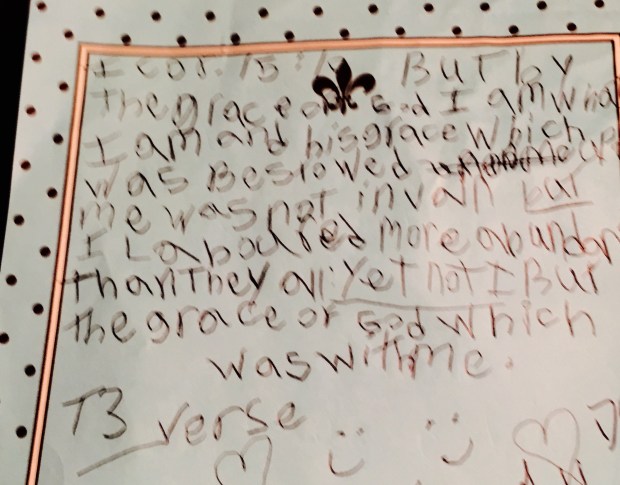 I cor. 15:10 But by
the grace of God I am wha
I am and his grace which
was Bestowed up
me was not in vain but
I Laboured more abundan
than they all: Yet not I But
the grace of God which
was with me.
T3 verse